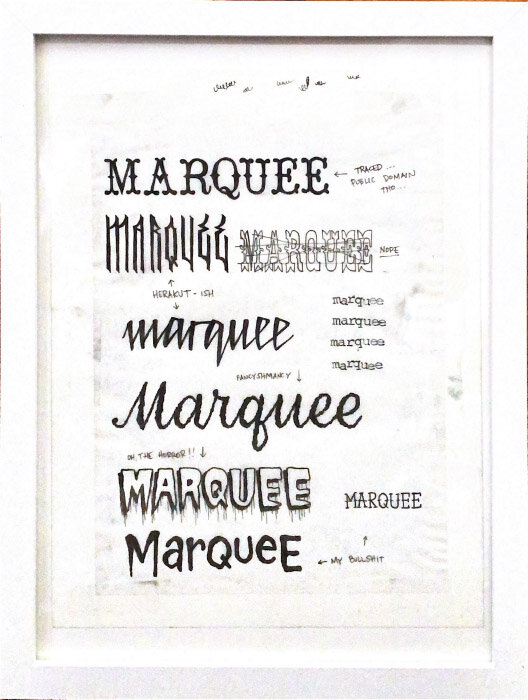 MARQUEE
← TRACED...
PUBLIC DOMAIN
THO...
MARQUEE MARQUEE NOPE
↑
HERAKUT-ISH
↓
marquee
marquee
marquee
marquee
marquee
FANCYSHMANCY ↓
Marquee
OH, THE HORROR!! ↓
MARQUEE
MARQUEE
↑
MarqueE
← MY BULLSHIT